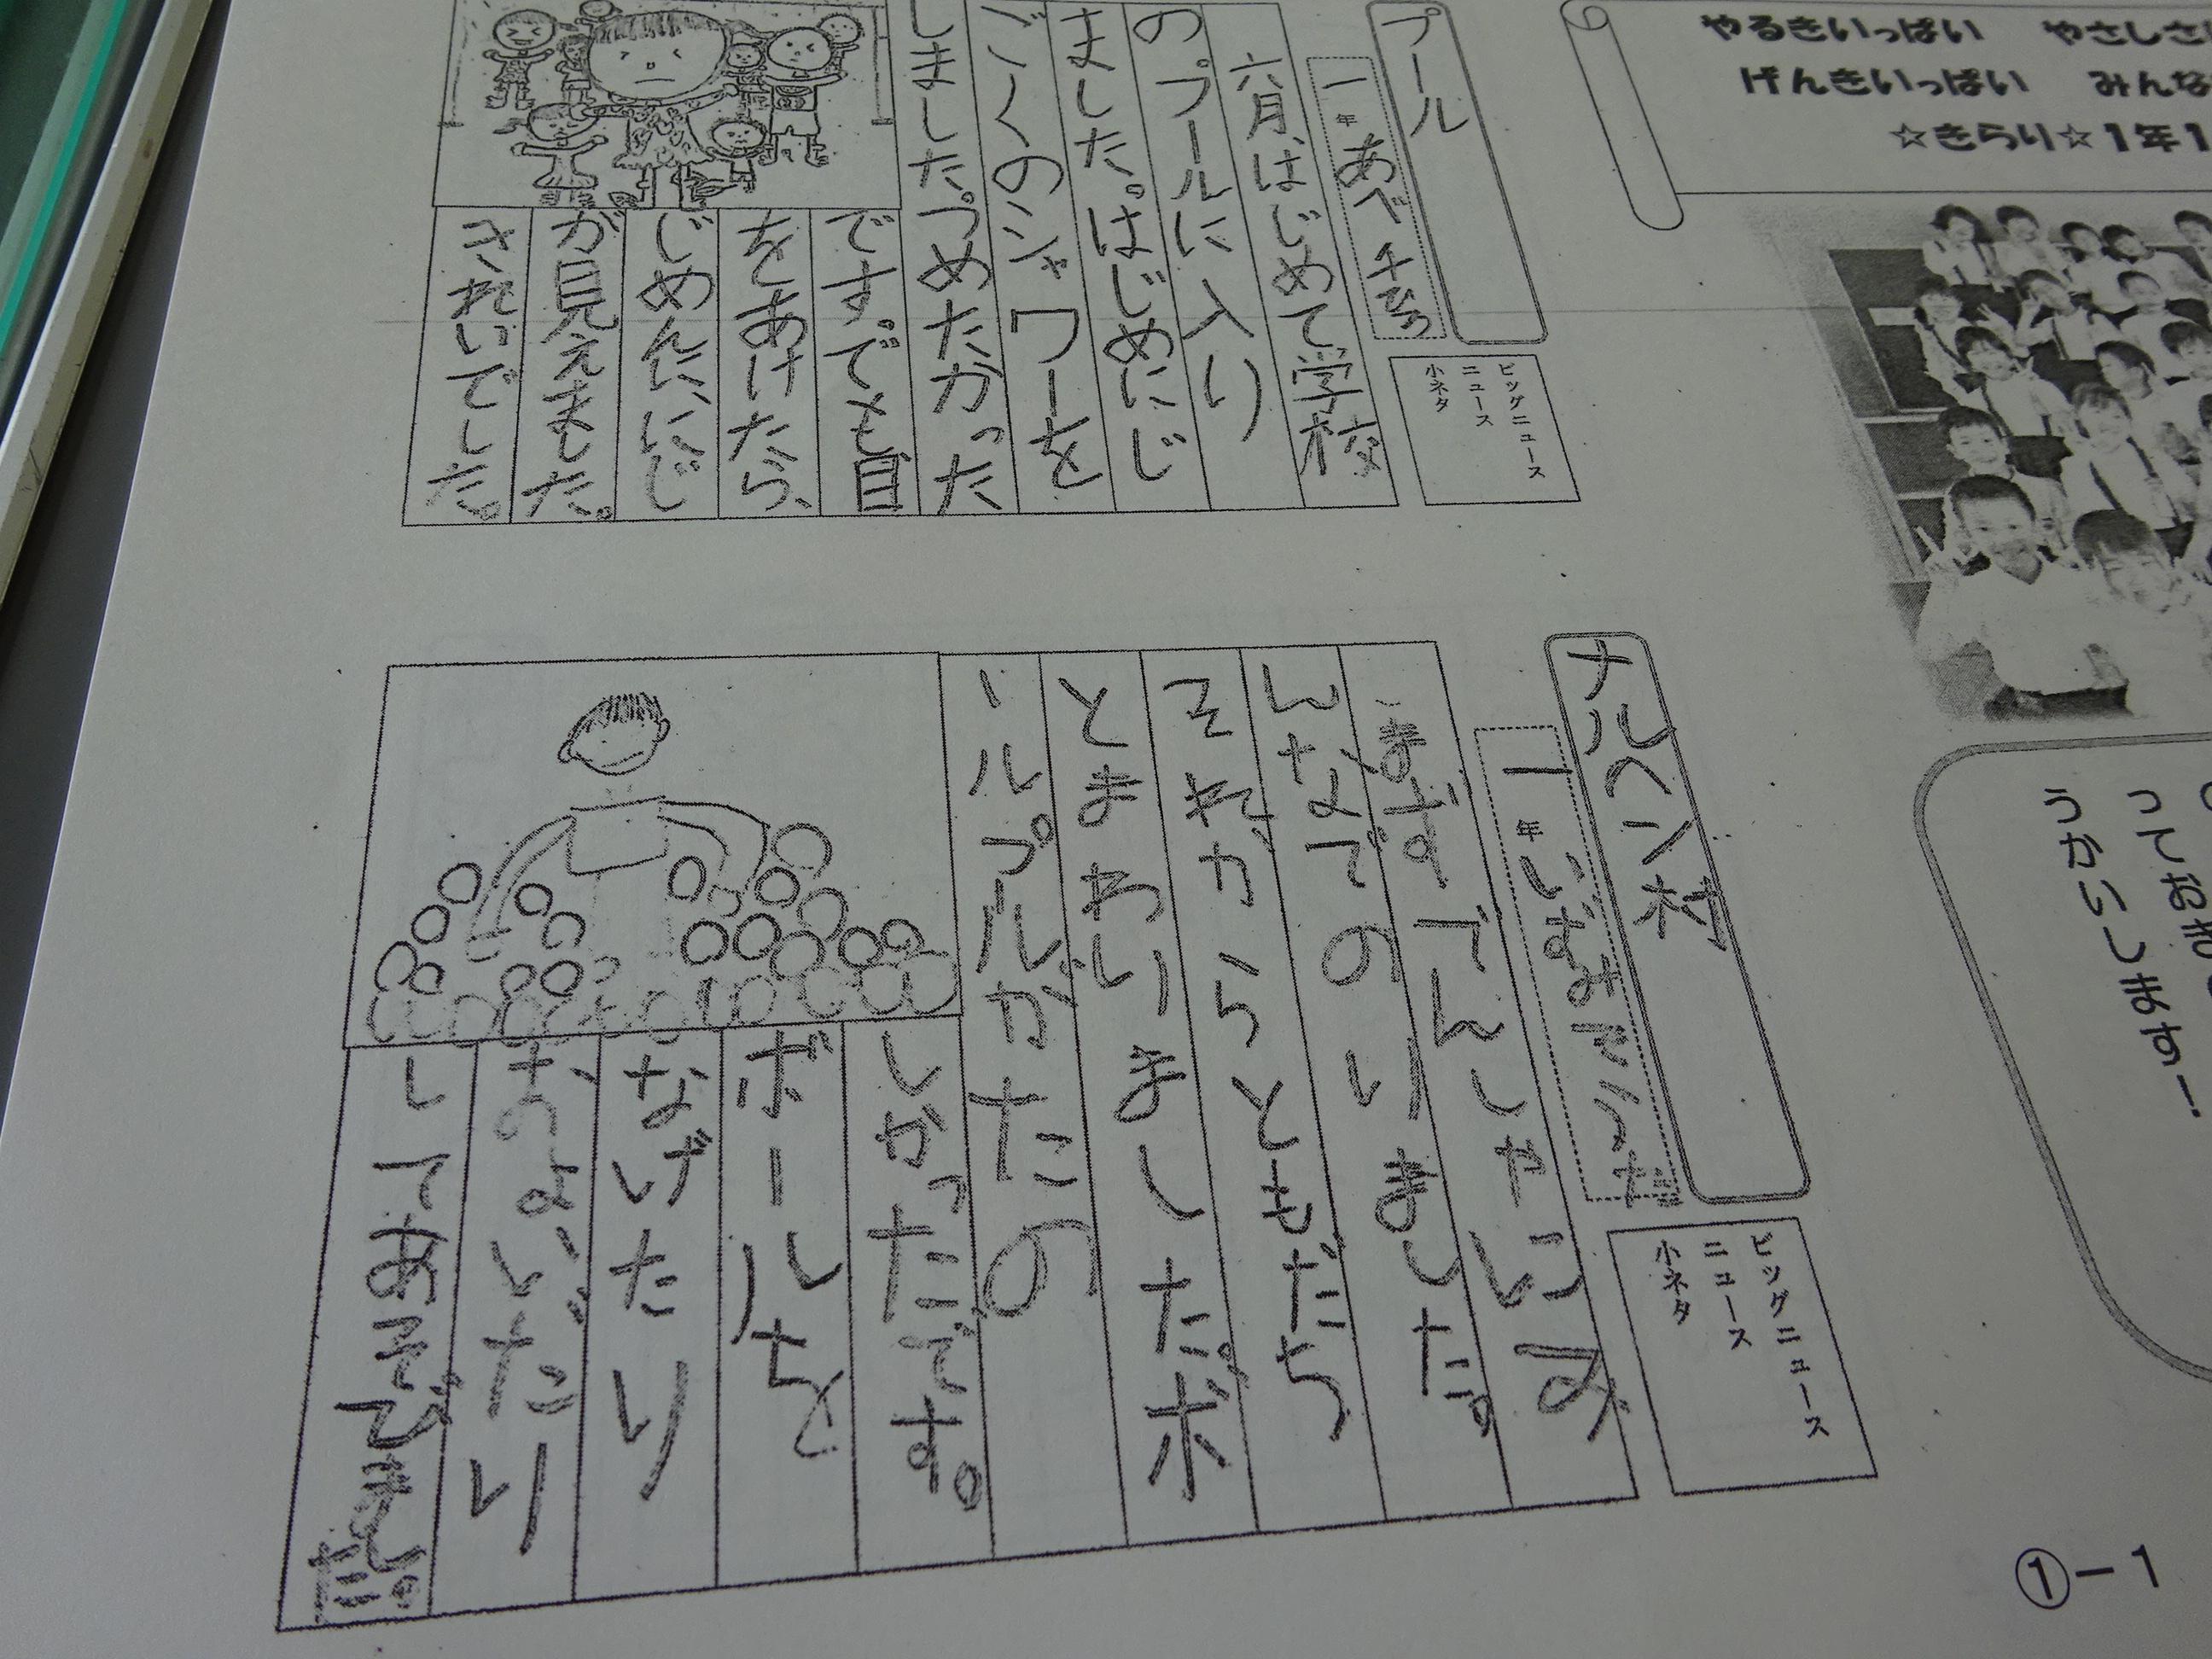 やるきいっぱい　やさしさ
げんきいっぱい　みんな
☆きらり☆1年1
プール
一年 あべ チ
ビッグニュース
ニュース
小ネタ
六月、はじめて学校
のプールに入り
ました。はじめにじ
ごくのシャワーを
しました。つめたかった
です。でも、目
をあけたら、
じめんに、にじ
が見えました。
きれいでした。
ナルヘン村
一年 いずみ
ビッグニュース
ニュース
小ネタ
まずでんしゃにみ
んなでのりました。
それからともだち
とまわりました。ボ
ールプルがたの
しかったです。
ボールを
なげたり
およいだり
してあそびました。
っておき
うかいします！
①－1